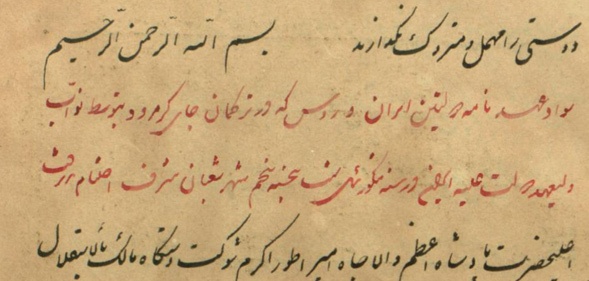 دوستی را مهمل و متروک نگذارند بسم الله الرحمن الرحیم
سواد عهدنامه دولتین ایران و روس که در ترکمان چای گرمرود بتوسط نواب
ولیعهد دولت علیه در سنه شب پنجشنبه پنجم شهر شعبان شرف اختتام پذیرفت
اعلیحضرت پادشاه اعظم والاجاه امپراطور اکرم شوکت دستگاه مالک بالاستقلال